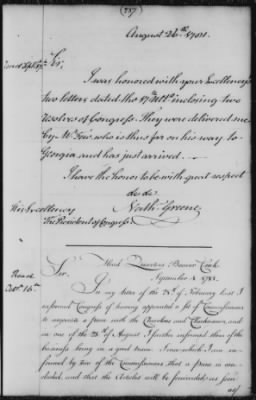 (737)
August 26th. 1781.
Sir,
I was honored with your Excellency's
two letters dated the 17th Ulto. inclosing two
resolves of Congress. They were delivered me
by Mr. Few who is thus far on his way to
Georgia and has just arrived.
I have the honor to be with great respect
&c. &c.
Nath. Greene,
His Excellency
The President of Congress
Head Quarters Beaver Creek
September 4 1781.
Read
Octr. 16th
Sir,
In my letter of the 28th of February last I
informed Congress of having appointed a set of Commissioners
to negociate a peace with the Cherokees and Chickasaws, and
in one of the 25th of August I further informed them of the
business being in a good train. Since which I am in-
formed by two of the Commissioners that a peace is con-
cluded, and that the Articles will be forwarded as soon
as